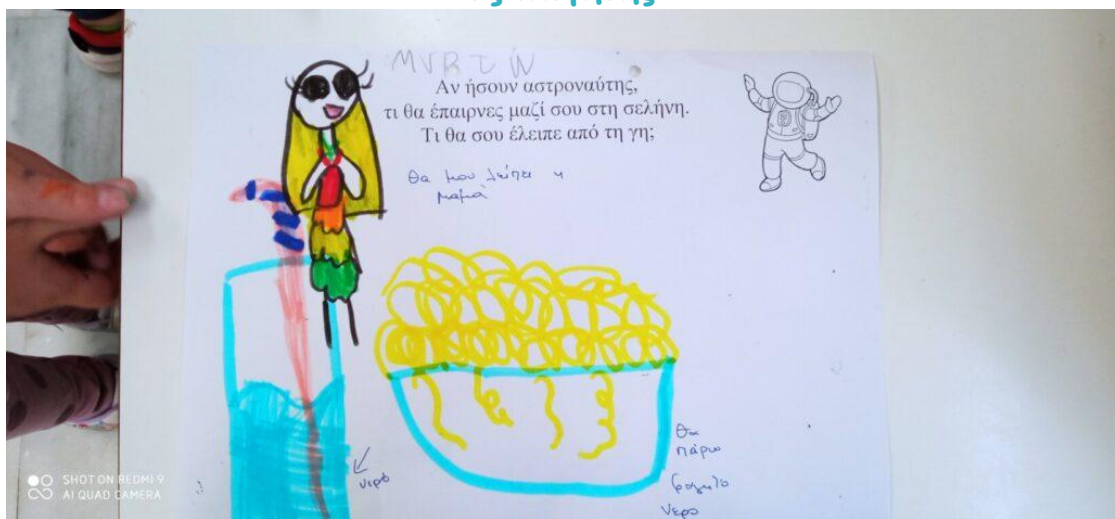 MVRTW
Αν ήσουν αστροναύτης,
τι θα έπαιρνες μαζί σου στη σελήνη.
Τι θα σου έλειπε από τη γη;
θα μου λείπει η
μαμά
νερό
θα
πάρω
φαγητό
νερο
SHOT ON REDMI 9
AI QUAD CAMERA